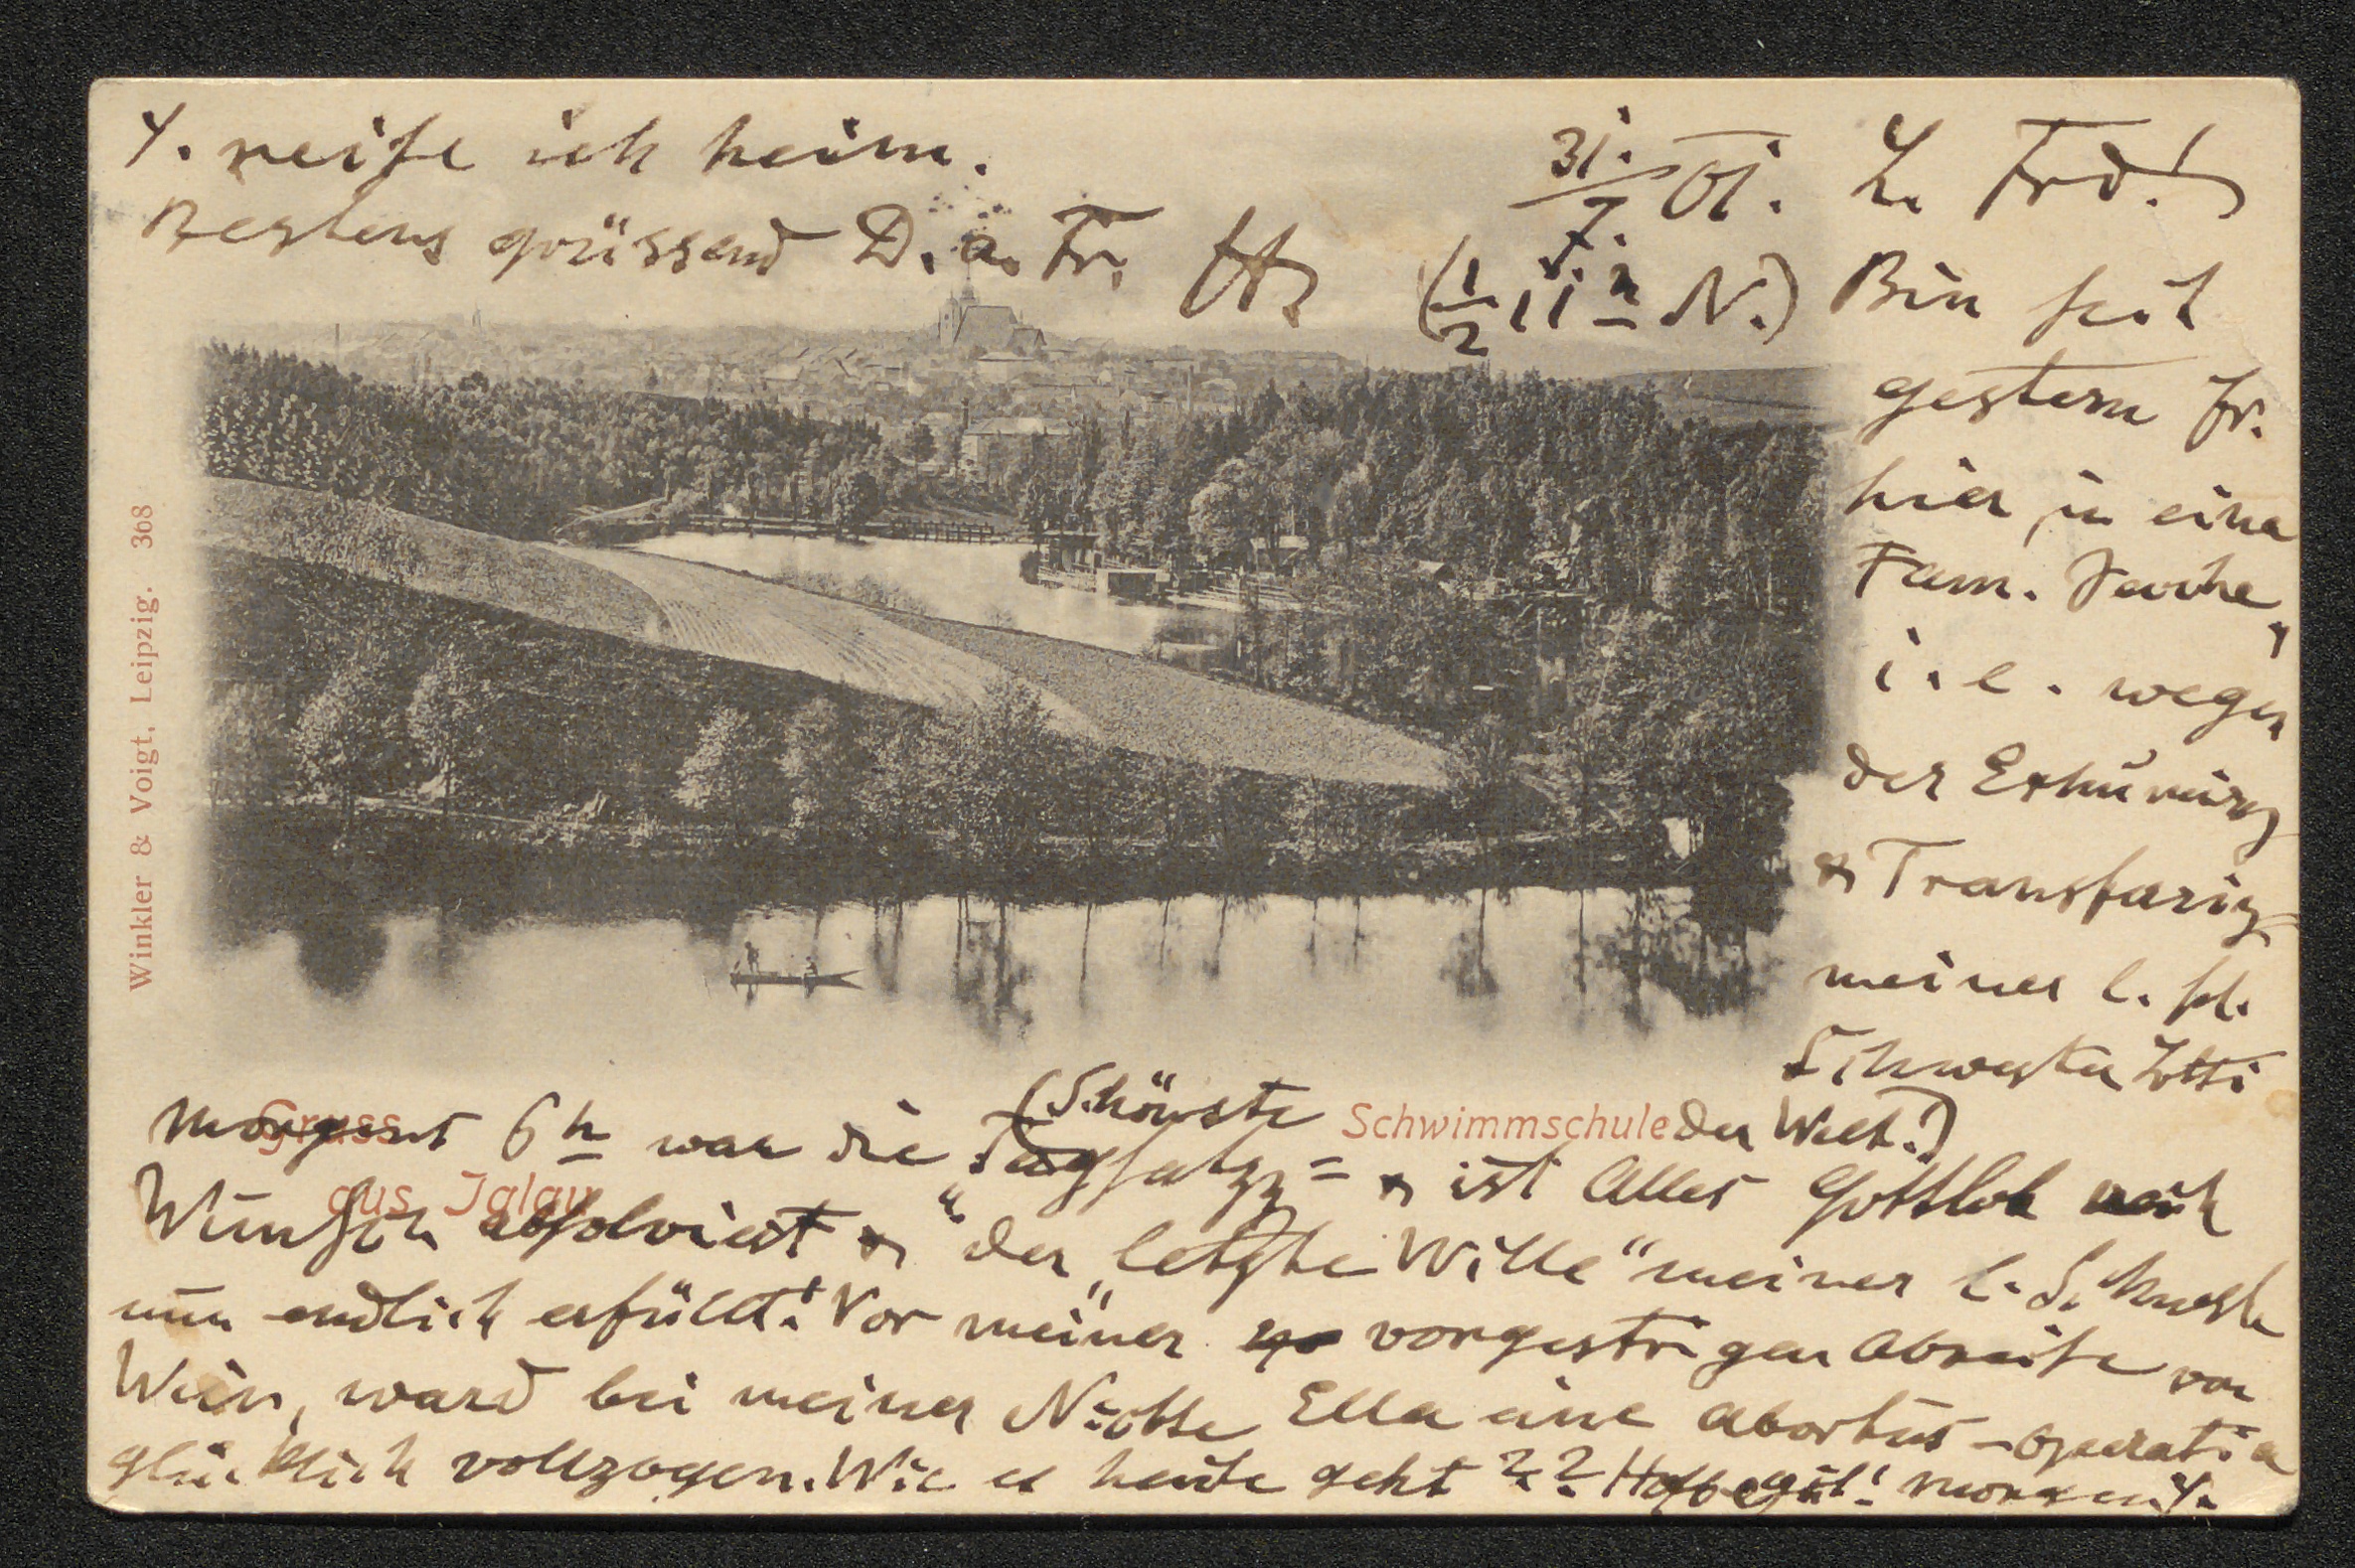 31./7. 01. L. Frd.!
(1/2 11 h N.) Bin seit
gestern Fr.
hier in einer
Fam. Sache,
i. e. wegen
der Exhumirg
& Transferirg
meiner l. sel.
Schwester Lotti
(Schönste Schwimmschule der Welt!)
Morgens 6 h war die Tagsatzg = & ist Alles Gottlob nach
Wunsch absolviert & "der "letzte Wille" meiner l. Schwester
nun endlich erfüllt! Vor meiner vorgestrigen Abreise von
Wien, ward bei meiner Nichte Ella eine Abortus-operation
glücklich vollzogen. Wie es heute geht?? Hoffe gut! Morgen
reise ich heim.
Bestens grüssend D. a. Fr.
Gruss
aus Iglau
Winkler & Voigt, Leipzig. 368